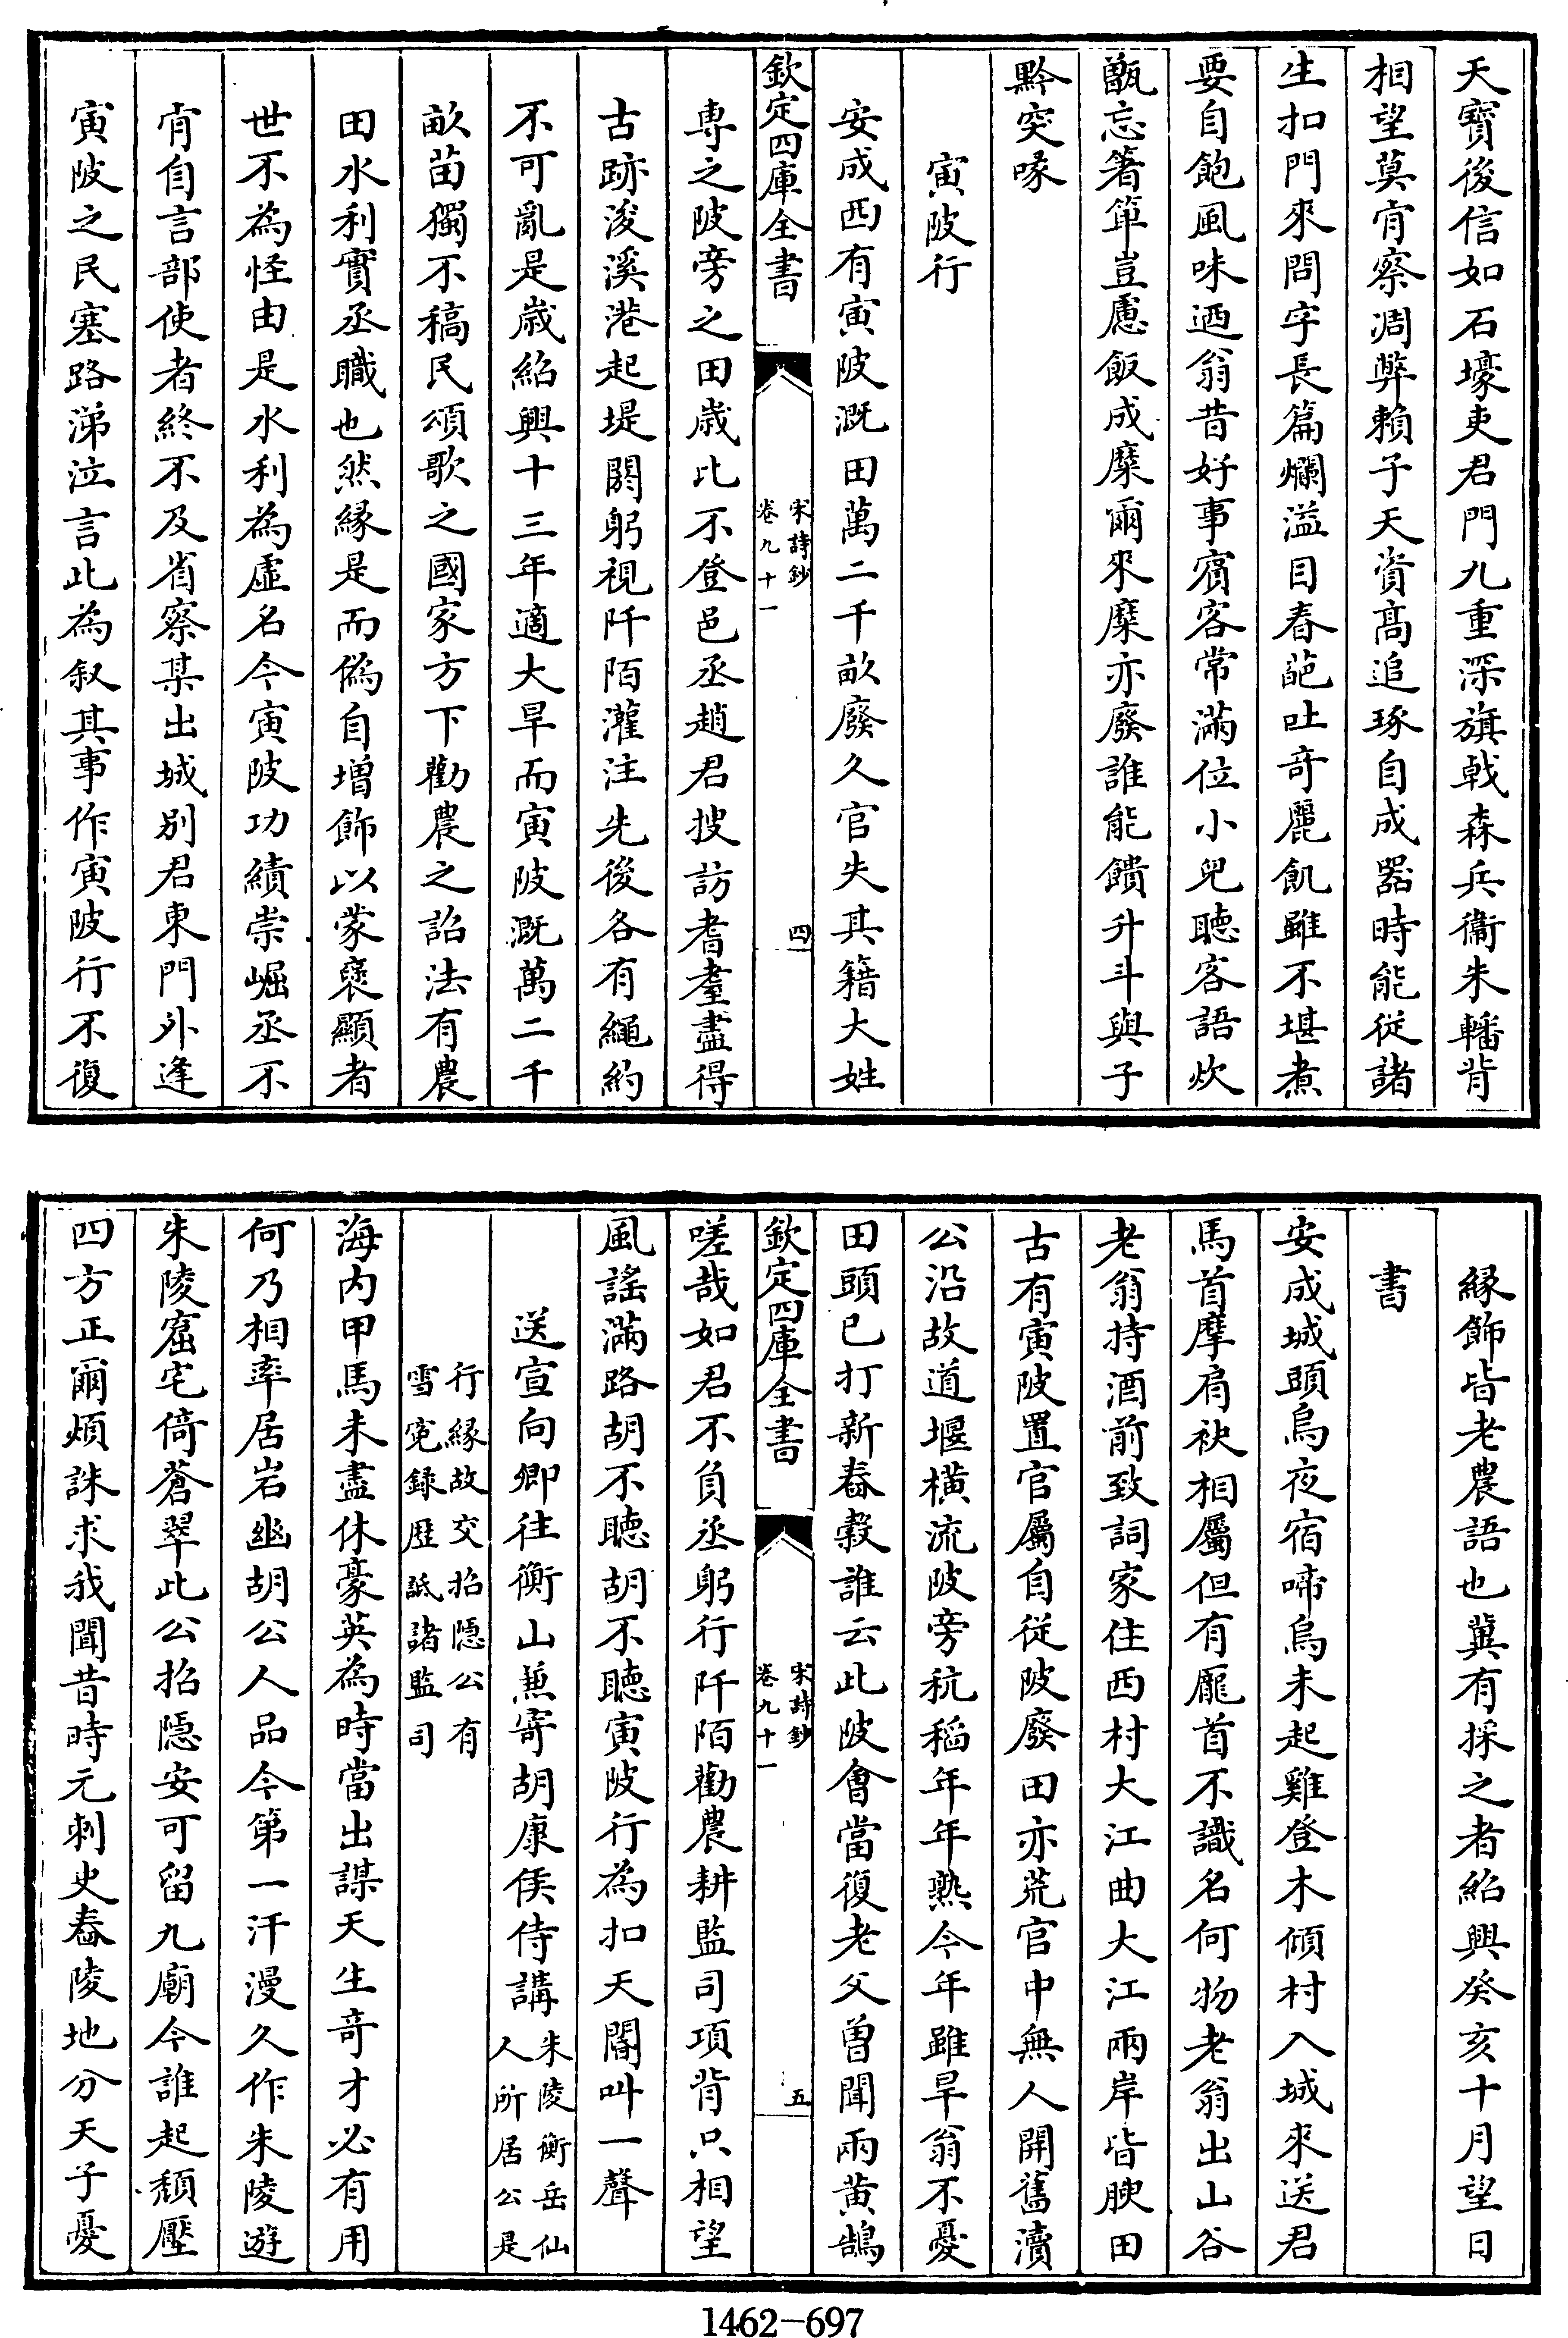 天寶後信如石壕吏君門九重深旗戟森兵衞朱轓背
相望莫肯察凋弊賴子天資髙追琢自成器時能從諸
生扣門來問字長篇爛溢目春葩吐奇麗飢雖不堪煮
要自飽風味迺翁昔好事賓客常滿位小兒聽客語炊
甑忘箸箄豈慮飯成糜爾來糜亦廢誰能饋升斗與子
黔突喙
寅陂行
安成西有寅陂溉田萬二千畝廢久官失其籍大姓
欽定四庫全書
宋詩鈔
卷九十一
四
専之陂旁之田歳比不登邑丞趙君搜訪耆耋盡得
古跡浚溪港起堤閼躬視阡陌灌注先後各有繩約
不可亂是歳紹興十三年適大旱而寅陂溉萬二千
畝苗獨不稿民頌歌之國家方下勸農之詔法有農
田水利實丞職也然縁是而偽自増飾以蒙襃顯者
世不為怪由是水利為虛名今寅陂功績崇崛丞不
肯自言部使者終不及省察某出城别君東門外逢
寅陂之民塞路涕泣言此為叙其事作寅陂行不復
縁飾皆老農語也冀有採之者紹興癸亥十月望日
書
安成城頭烏夜宿啼烏未起雞登木傾村入城來送君
馬首摩肩袂相屬但有龎首不識名何物老翁出山谷
老翁持酒前致詞家住西村大江曲大江兩岸皆腴田
古有寅陂置官屬自從陂廢田亦荒官中無人開舊瀆
公沿故道堰橫流陂旁秔稻年年熟今年雖旱翁不憂
田頭已打新舂榖誰云此陂會當復老父曽聞兩黄鵠
欽定四庫全書
宋詩鈔
卷九十一
五
嗟哉如君不負丞躬行阡陌勸農耕監司項背只相望
風謠滿路胡不聽胡不聽寅陂行為扣天閽叫一聲
送宣向卿往衡山兼寄胡康侯侍講朱陵衡岳仙
人所居公是
行縁故交招隠公有
雪寃録歴詆諸監司
海内甲馬未盡休豪英為時當出謀天生奇才必有用
何乃相率居岩幽胡公人品今第一汗漫久作朱陵遊
朱陵窟宅倚蒼翠此公招隠安可留九廟今誰起頽壓
四方正爾煩誅求我聞昔時元刺史舂陵地分天子憂
1462-697